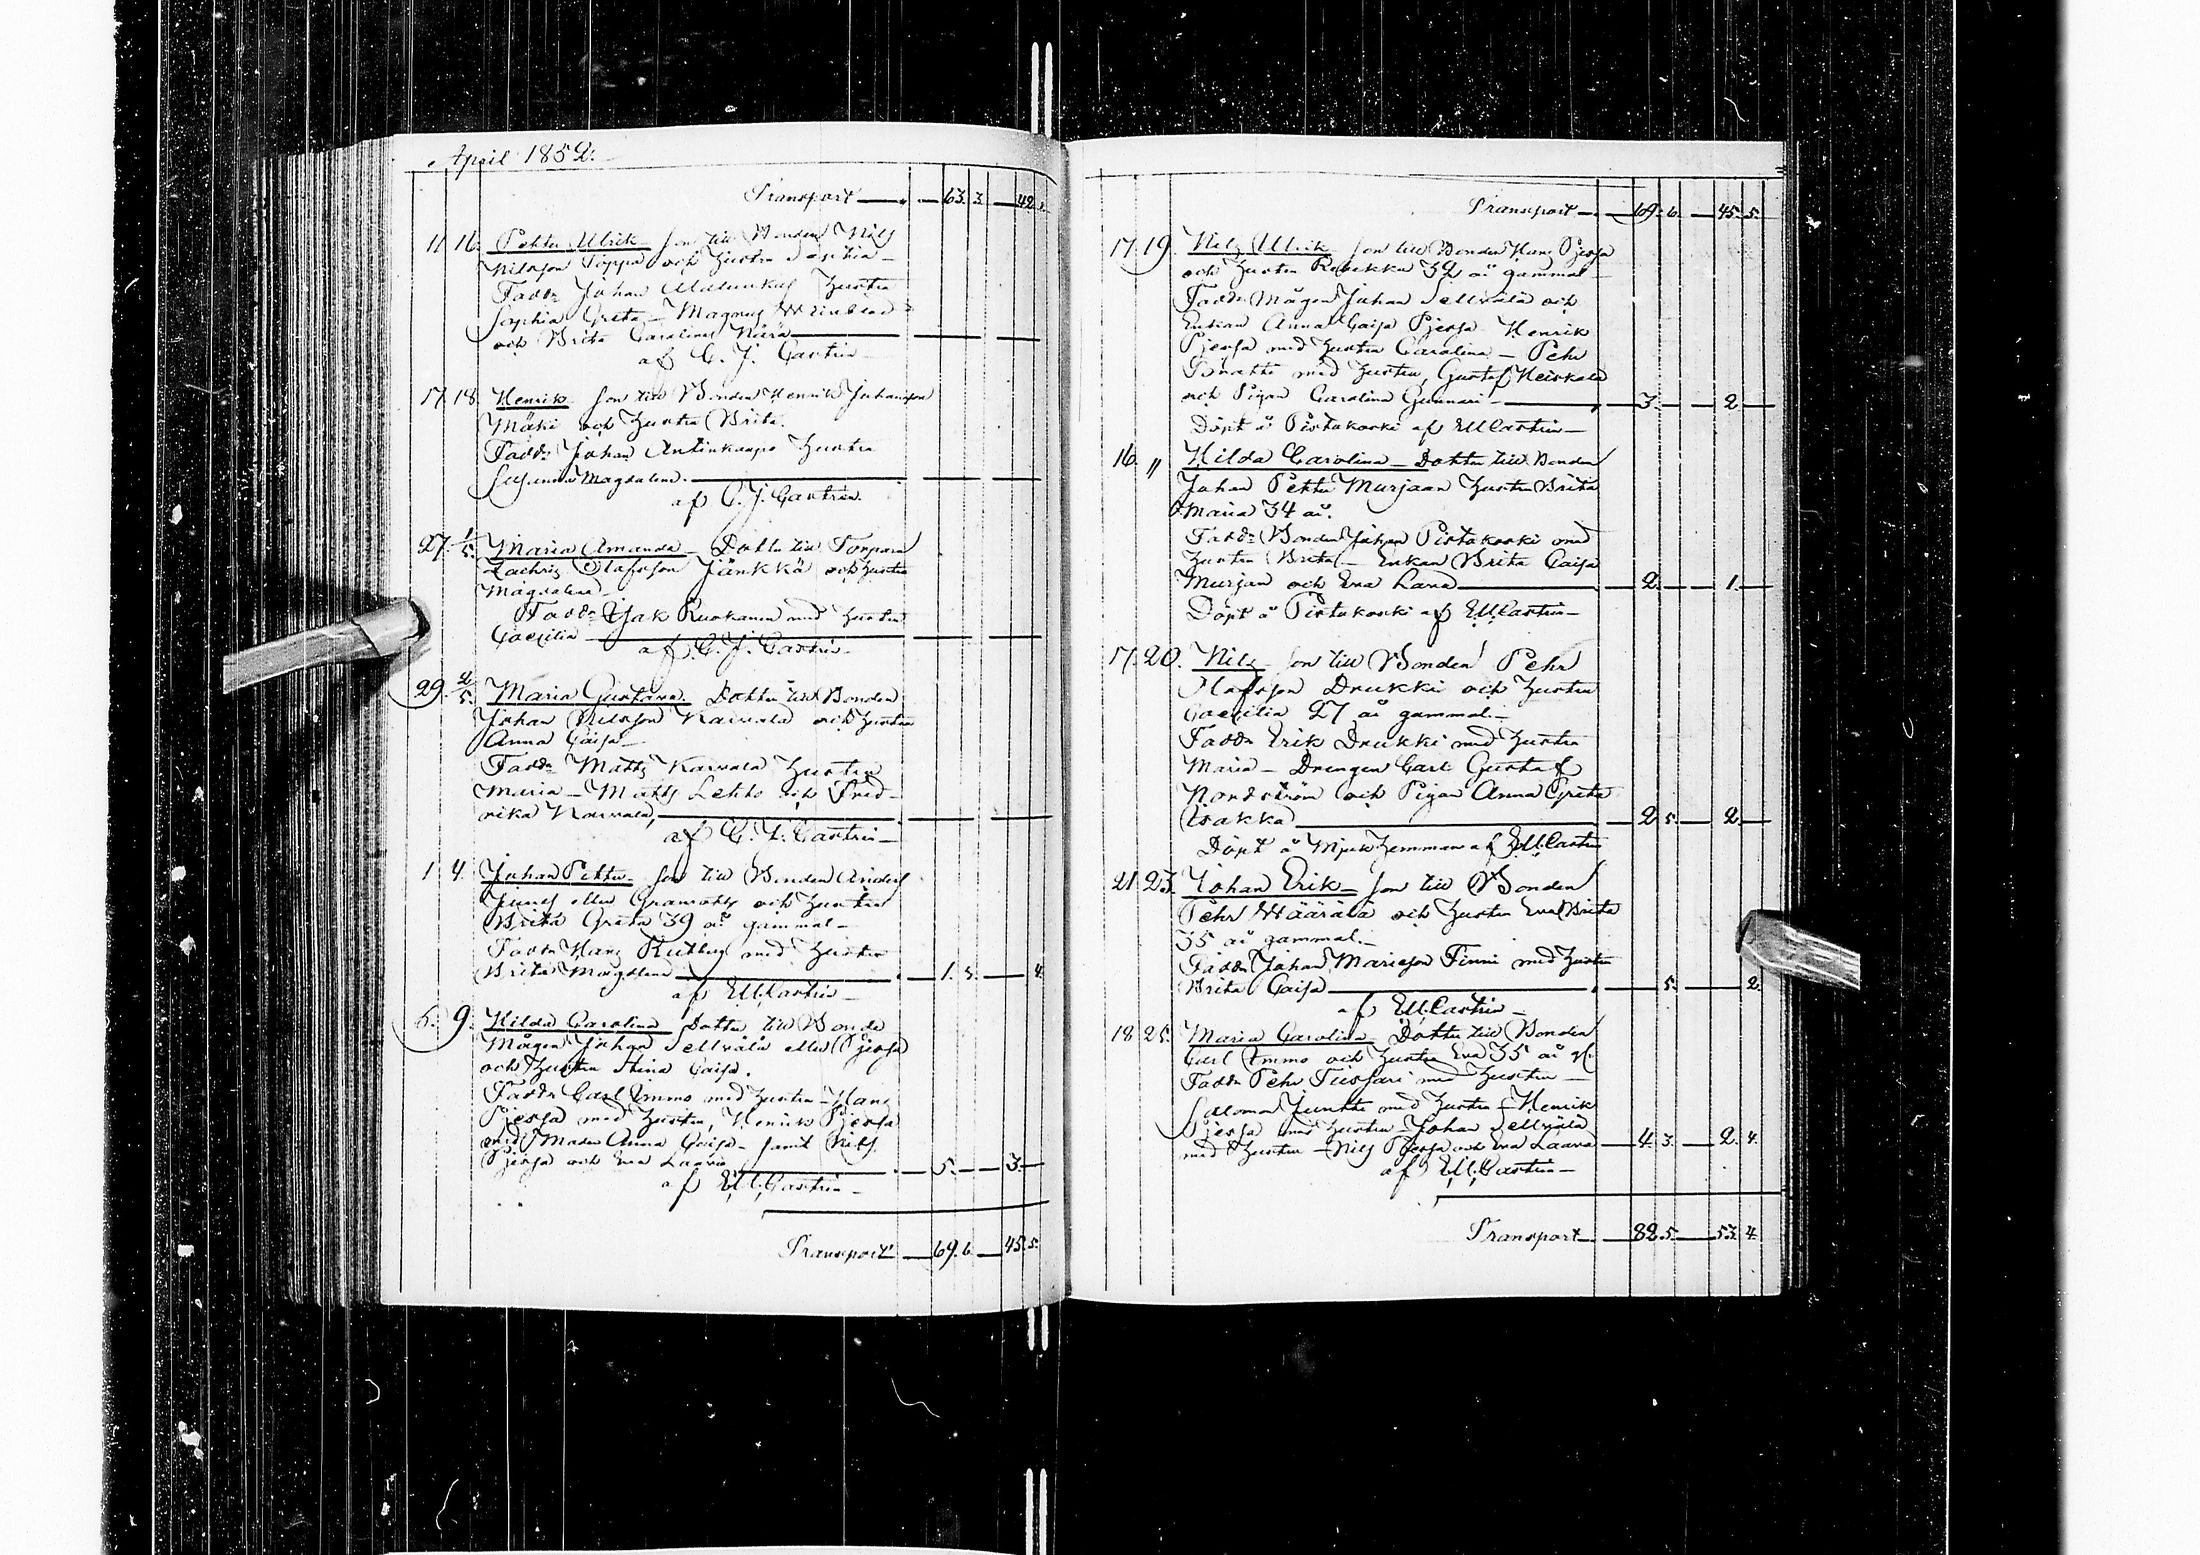 April 1852.
Transport 63. 3. 42.
11. 16. Petter Ulrik Son till Bonden Nils
Nilsson Poppa och Hustru
Fadd: Johan Hustru
Sophia Greta – Magnus
och Brita Carolina
af C. J. Castrén
17. 18. Henrik Son till Bonden Henrik Johansson
Mäki och Hustru Brita.
Fadd: Johan Antinkaapo Hustru
Susanna Magdalena.
af C. J. Castrén
27. 1/5. Maria Amanda – Dotter till Torparn
Zachris Olofsson Jänkkä och Hustru
Magdalena –
Fadd: Isak Ruokanen med Hustru
Caecilia
af C. J. Castrén
29. 2/5. Maria Gustava Dotter till Bonden
Johan Nilsson Kaivala och Hustru
Anna Caisa –
Fadd: Matts Kaivala Hustru
Maria – Matts Lehto och Fred-
rika Kaivala,
af C. J. Castrén –
1. 4. Johan Petter – Son till Bonden Anders
Junes eller och Hustru
Brita Greta 39 år gammal –
Fadd: Hans med Hustru
Brita Magdalena 1. 5. 4.
af E M Castrén –
5. 9. Hilda Carolina Dotter till Bonde
Mågen Johan Sellvälä eller Pjesja
och Hustru Stina Caisa.
Fadd: Carl Immo med Hustru – Hans
Pjesja med Hustru, Henrik Pjesja
med Moder Anna Caisa – samt Nils
Pjesja och Eva Laavia 5. 3.
af E M Castrén –
Transport 69. 6. 45. 5.
Transport 69. 6. 45. 5.
17. 19. Nils Ulrik Son till Bonden Hans Pjesja
och Hustru Rebekka 32 år gammal
Fadd: Mågen Johan Sellvälä och
Enkan Anna Caisa Pjesja – Henrik
Pjesja med Hustru Carolina – Pehr
med Hustru, Gustaf Heiskala
och Pigan Carolina Gunnari 3. 2.
Döpt å Pirtukoski af E M Castrén –
16. " Hilda Carolina – Dotter till Bonden
Johan Petter Murjaan Hustru Brita
Maria 34 år.
Fadd: Bonden Johan Pirtukoski med
Hustru Brita – Enkan Brita Caisa
Murjan och Eva Lava 2. 1.
Döpt å Pirtukoski af E M Castrén –
17. 20. Nils Son till Bonden Pehr
Olofsson Drukki och Hustru
Caecilia 27 år gammal. –
Fadd: Erik Drukki med Hustru
Maria – Drengen Carl Gustaf
Nordström och Pigan Anna Greta
Isakka 2. 5. 2.
Döpt å Hemman af E M Castrén
21. 23. Johan Erik – Son till Bonden
Pehr Määrälä och Hustru Eva Brita
35 år gammal. –
Fadd: Johan Mariesson Finni med Hustru
Brita Caisa 5. 2.
af E M Castrén –
18. 25. Maria Carolina Dotter till Bonden
Carl Immo och Hustru Eva 35 år gl.
Fadd: Pehr med Hustru –
Salomon Juntti med Hustru – Henrik
Pjesja med Hustru – Johan Sellvälä
med Hustru – Nils Pjesja och Eva Laava 4. 3. 2. 4.
af E M Castrén –
Transport 82. 5. 53. 4.